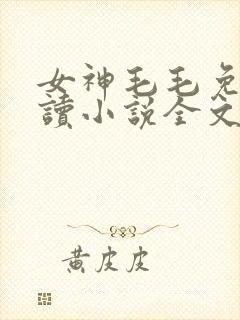 女神毛毛免
讀小説全文
黄皮皮